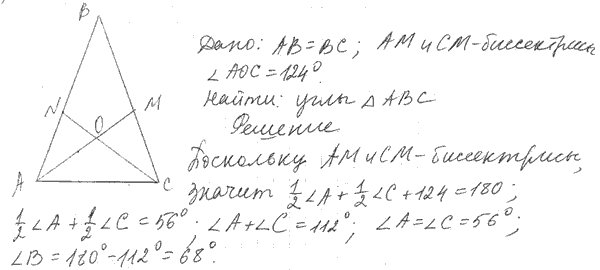 B
Дано: AB=BC; AM и CM-биссектрисы
∠AOC=124°.
Найти: углы △ABC
Решение
N
M
O
A
C
Поскольку AM и CM-биссектрисы,
значит 1/2∠A+1/2∠C+124=180;
1/2∠A+1/2∠C=56°; ∠A+∠C=112°; ∠A=∠C=56°;
∠B=180°-112°=68°.